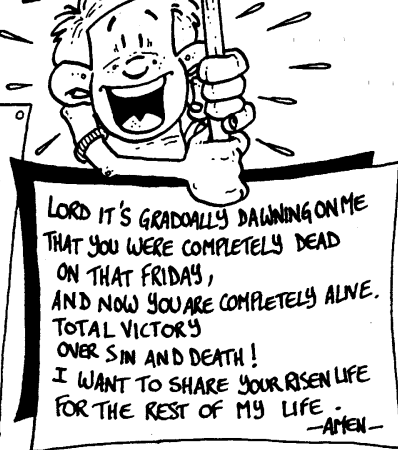 LORD IT'S GRADUALLY DAWNING ON ME
THAT YOU WERE COMPLETELY DEAD
ON THAT FRIDAY,
AND NOW YOU ARE COMPLETELY ALIVE.
TOTAL VICTORY
OVER SIN AND DEATH!
I WANT TO SHARE YOUR RISEN LIFE
FOR THE REST OF MY LIFE.
—AMEN—